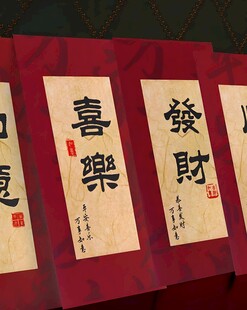 意
喜樂
平安喜乐
万事如意
發財
恭喜发财
万事如意